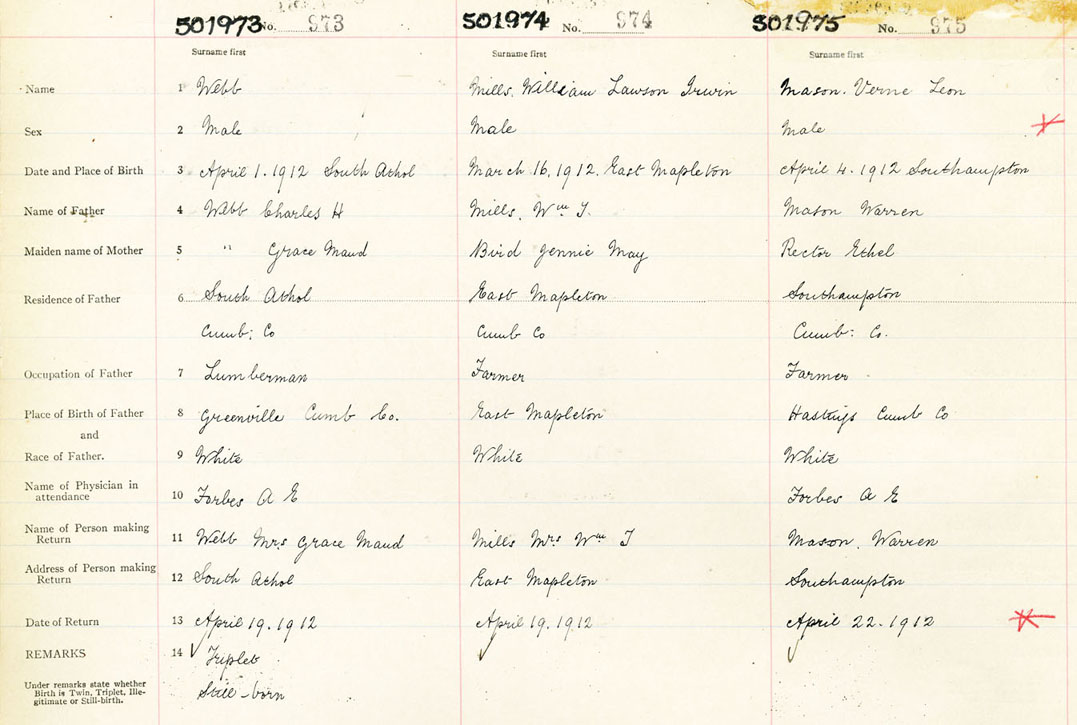 501973 No. 973 501974 No. 974 501975 No. 975
Surname first Surname first Surname first
Name 1 Webb Mills, William Lawson Irwin Mason. Verne Leon
Sex 2 Male Male Male
Date and Place of Birth 3 April 1. 1912 South Athol March 16, 1912. East Mapleton April 4. 1912 Southampton
Name of Father 4 Webb Charles H Mills, Wm T. Mason Warren
Maiden name of Mother 5 " Grace Maud Bird Jennie May Rector Ethel
Residence of Father 6 South Athol East Mapleton Southampton
Cumb: Co Cumb Co Cumb: Co.
Occupation of Father 7 Lumberman Farmer Farmer
Place of Birth of Father 8 Greenville Cumb Co. East Mapleton Hastings Cumb Co
and
Race of Father. 9 White White White
Name of Physician in
attendance 10 Forbes A E Forbes A E
Name of Person making
Return 11 Webb Mrs Grace Maud Mills Mrs Wm T Mason, Warren
Address of Person making
Return 12 South Athol East Mapleton Southampton
Date of Return 13 April 19. 1912 April 19. 1912 April 22. 1912
REMARKS 14 Triplet
Under remarks state whether
Birth is Twin, Triplet, Ille-
gitimate or Still-birth.
Still-born